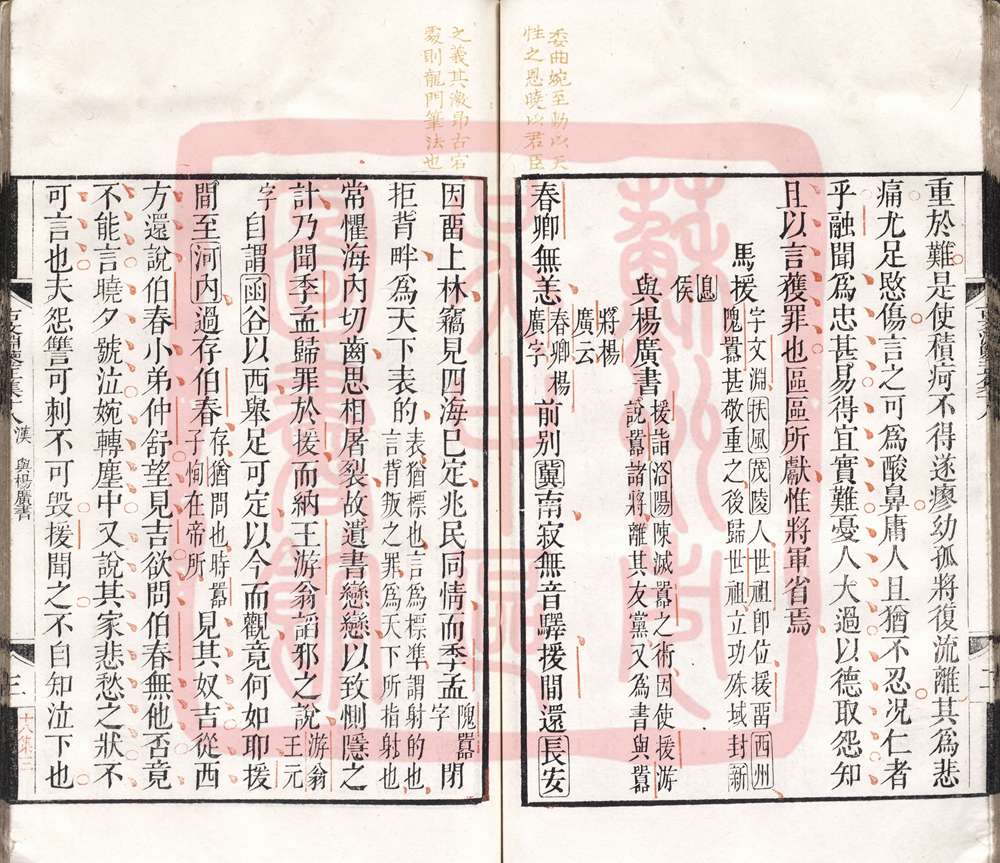 委曲婉至動以天
性之恩曉以君臣
之義其激昂古宕
處則龍門筆法也
重於難是使積疴不得遂瘳幼孤將復流離其爲悲
痛尤足愍傷言之可爲酸鼻庸人且猶不忍况仁者
乎融聞爲忠甚易得宜實難憂人大過以德取怨知
且以言獲罪也區區所獻惟將軍省焉
馬援
字文淵扶風茂陵人世祖即位援畱西州
隗囂甚敬重之後歸世祖立功殊域封新
息
侯
與楊廣書
援詣洛陽陳滅囂之術因使援游
說囂諸將離其友黨又爲書與囂
將楊
廣云
春卿無恙
春卿楊
廣字
前别冀南寂無音驛援間還長安
因畱上林竊見四海已定兆民同情而季孟
隗囂
字
閉
拒背畔爲天下表的
表猶標也言爲標準謂射的也
言背叛之罪爲天下所指射也
常懼海内切齒思相屠裂故遺書戀戀以致惻隱之
計乃聞季孟歸罪於援而納王游翁諂邪之說
游翁
王元
字
自謂函谷以西舉足可定以今而觀竟何如耶援
間至河内過存伯春
存猶問也時囂
子恂在帝所
見其奴吉從西
方還說伯春小弟仲舒望見吉欲問伯春無他否竟
不能言曉夕號泣婉轉塵中又說其家悲愁之狀不
可言也夫怨讐可刺不可毁援聞之不自知泣下也
漢 與楊廣書
三